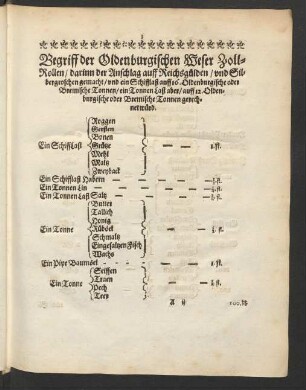 Begriff der Oldenburgischen Weser Zoll-
Rollen / darinn der Anschlag auff Reichsgülden / vnd Sil-
bergroschen gemacht / vnd ein Schifflast auff 16. Oldenburgische oder
Bremische Tonnen / ein Tonnen Last aber / auff 12. Olden-
burgische oder Bremische Tonnen gerech-
net wird.
Roggen
Gersten
Bonen
Ein Schifflast Grütze
Mehl
Maltz
Zweyback
Ein Schifflast Habern
Ein Tonnen Lin
Ein Tonnen Last Saltz
Butter
Tallich
Honig
Ein Tonne
Schmaltz
Eingesaltzen Fisch
Wachs
Ein Pipe Baumöel
Seiffen
Ein Tonne Traen
Pech
Teer
A ij